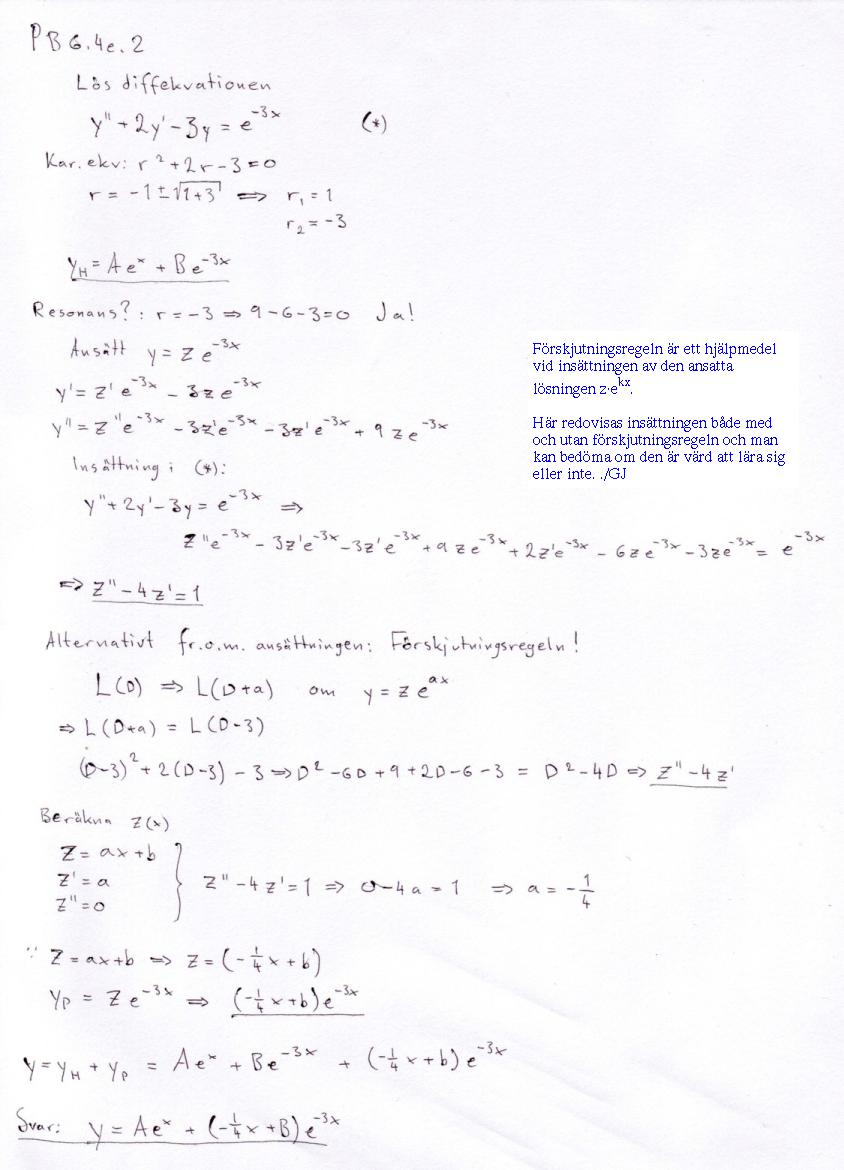 PB 6.4e.2
Lös diffekvationen
y'' + 2y' - 3y = e^{-3x} (*)
Kar. ekv: r² + 2r - 3 = 0
r = -1 ± √(1+3) ⇒ r₁ = 1
r₂ = -3
y_H = Ae^x + Be^{-3x}
Resonans?: r = -3 ⇒ 9-6-3=0 Ja!
Ansätt y = z e^{-3x}
y' = z' e^{-3x} - 3z e^{-3x}
y'' = z'' e^{-3x} - 3z' e^{-3x} - 3z' e^{-3x} + 9 z e^{-3x}
Insättning i (*):
y'' + 2y' - 3y = e^{-3x} ⇒
z'' e^{-3x} - 3z' e^{-3x} - 3z' e^{-3x} + 9 z e^{-3x} + 2z' e^{-3x} - 6z e^{-3x} - 3z e^{-3x} = e^{-3x}
⇒ z'' - 4z' = 1
Förskjutningsregeln är ett hjälpmedel
vid insättningen av den ansatta
lösningen z·e^{kx}.
Här redovisas insättningen både med
och utan förskjutningsregeln och man
kan bedöma om den är värd att lära sig
eller inte. ./GJ
Alternativt fr.o.m. ansättningen: Förskjutningsregeln!
L(D) ⇒ L(D+a) om y = z e^{ax}
⇒ L(D+a) = L(D-3)
(D-3)² + 2(D-3) - 3 ⇒ D² - 6D + 9 + 2D - 6 - 3 = D² - 4D ⇒ z'' - 4z'
Beräkna z(x)
z = ax+b
z' = a } z'' - 4z' = 1 ⇒ 0 - 4a = 1 ⇒ a = -1/4
z'' = 0
∵ z = ax+b ⇒ z = (-1/4 x + b)
y_P = z e^{-3x} ⇒ (-1/4 x + b) e^{-3x}
y = y_H + y_P = Ae^x + Be^{-3x} + (-1/4 x + b) e^{-3x}
Svar: y = Ae^x + (-1/4 x + B) e^{-3x}